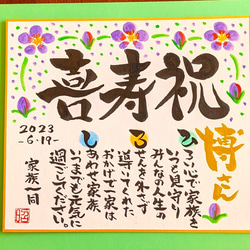 喜寿祝
博さん
ひろい心で家族を
いつも見守り
みんなの人生の
ろせんを外さず
導いてくれた
おかげで一家は
しあわせ家族
いつまでも元気に
過ごしてください。
家族一同
2023
-6.19-